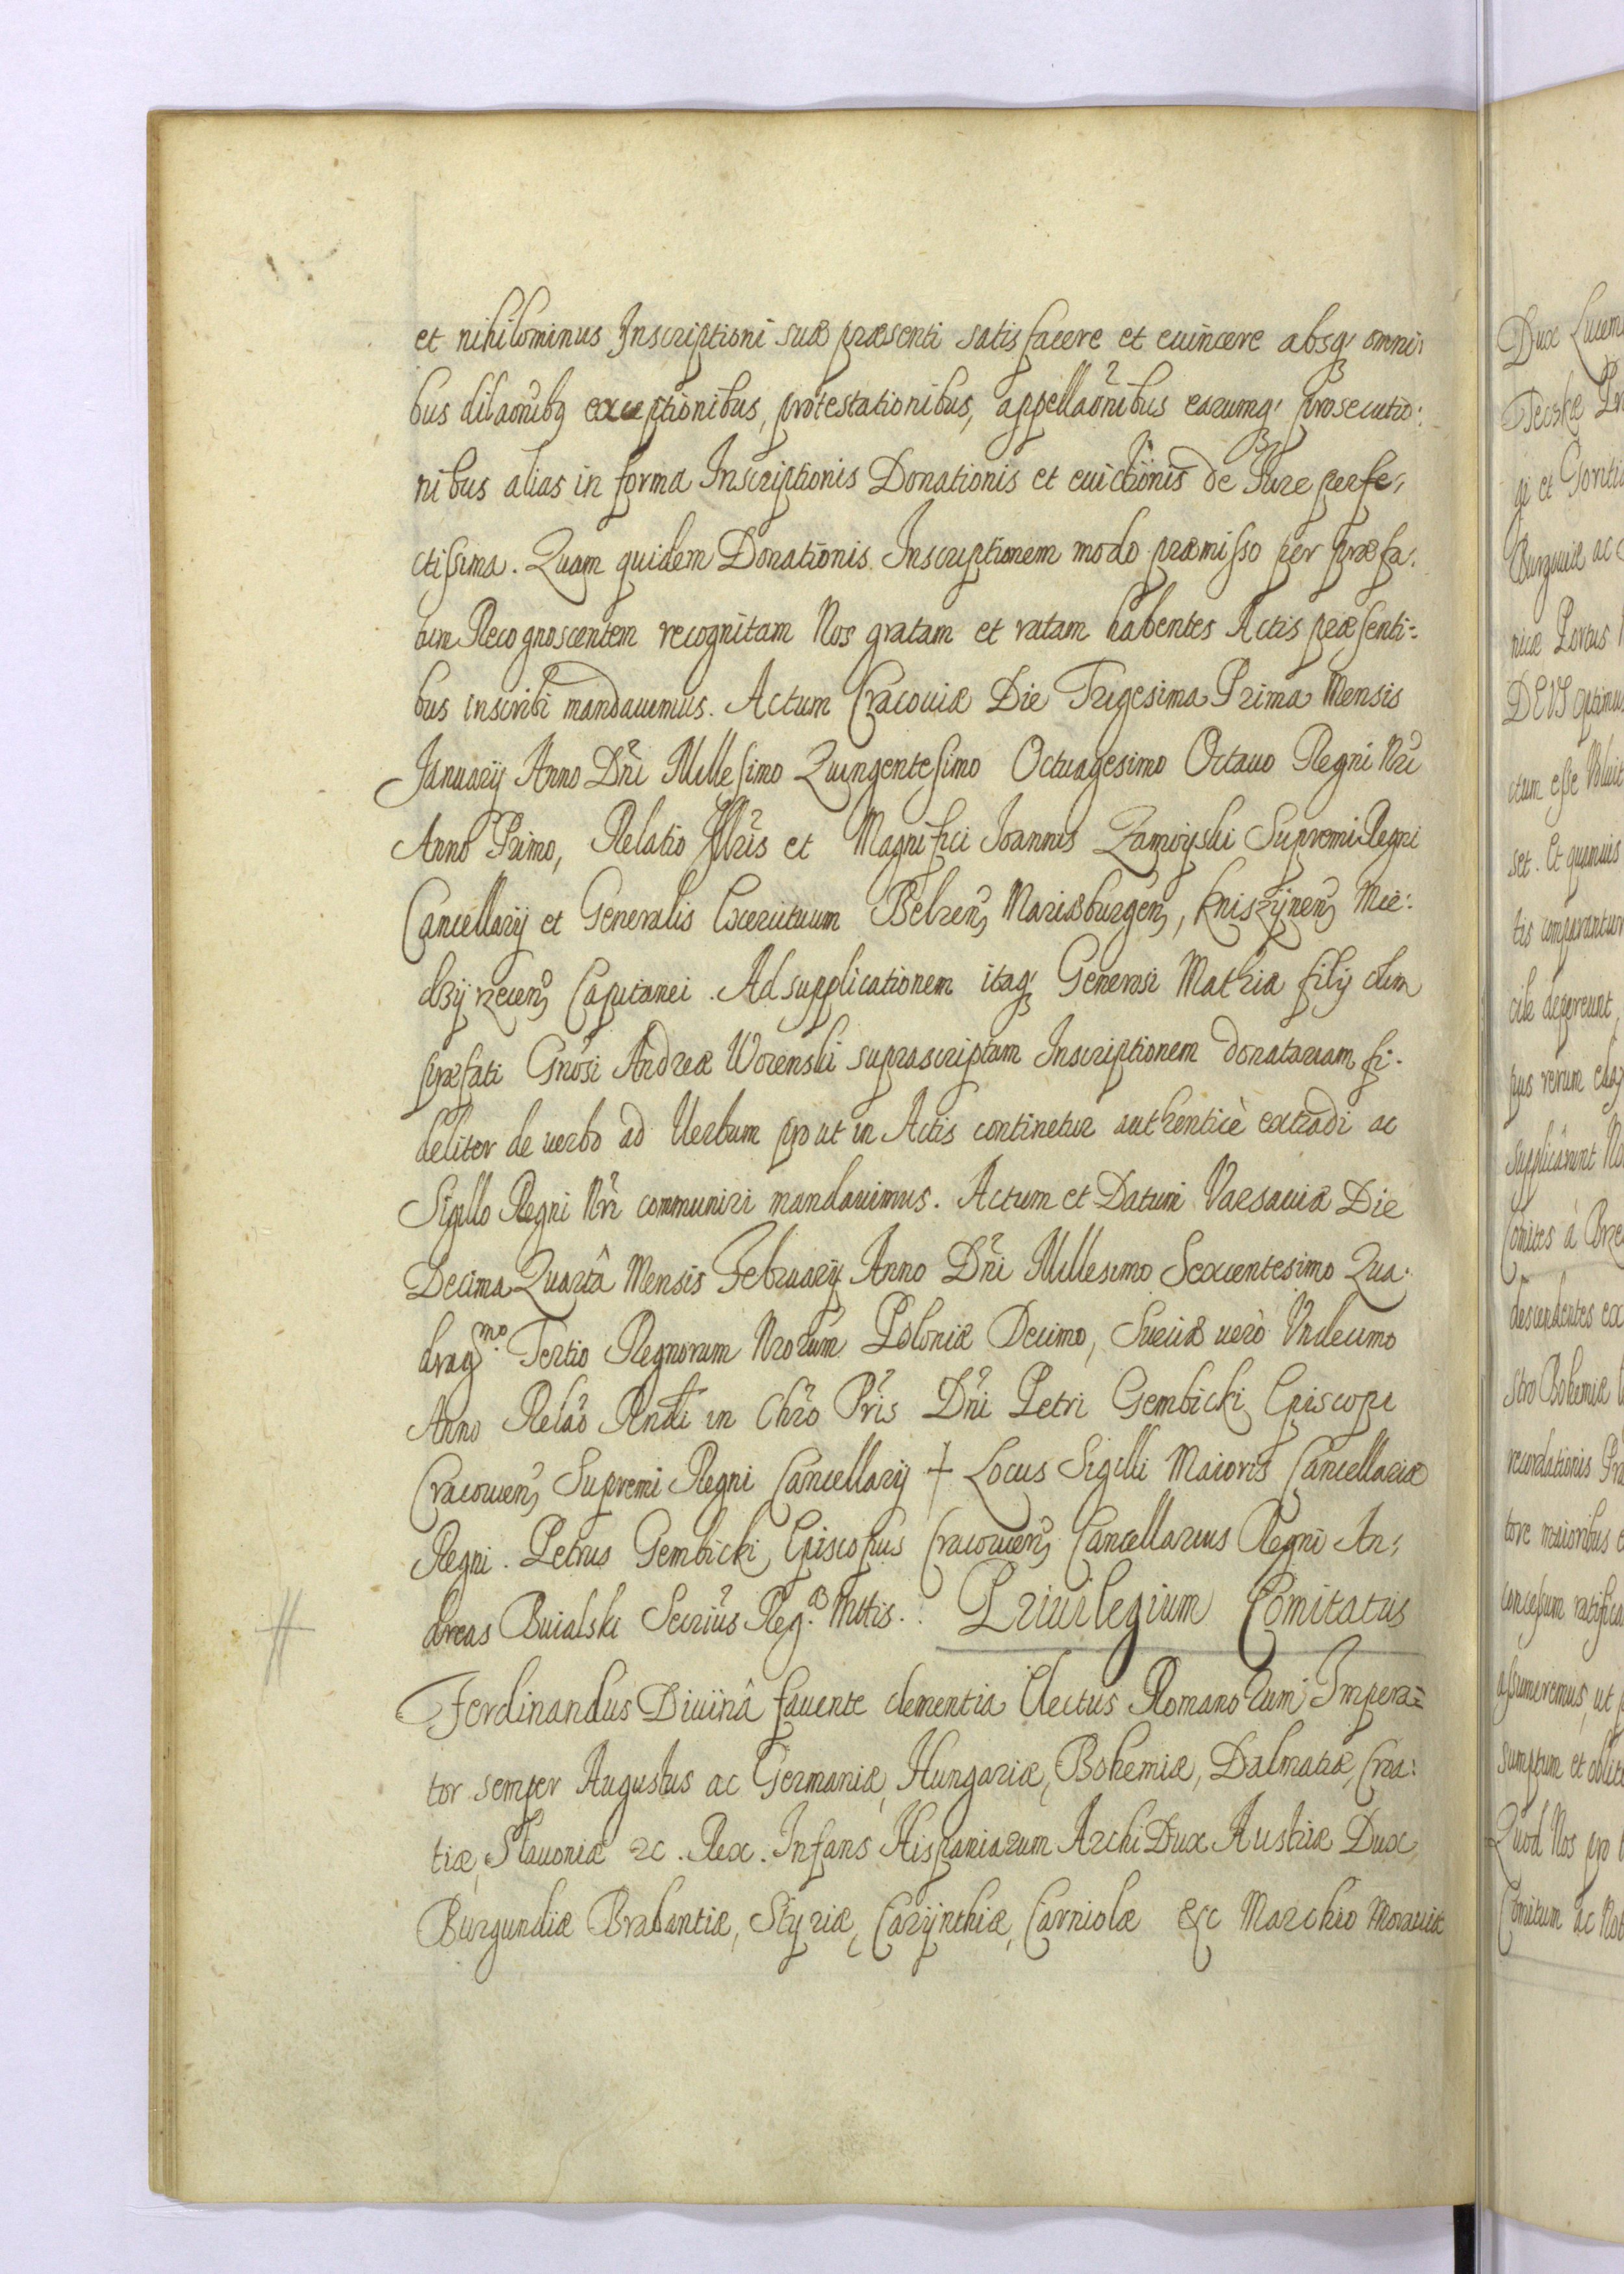 et nihilominus Inscriptioni suæ præsenti satisfacere et euincere absq; omni:
bus dilaõnibq exceptionibus, protestationibus, appellaõnibus earumq; prosecutio:
nibus alias in forma Inscriptionis Donationis et euictionis de Jure perfe:
ctissima. Quam quidem Donationis Inscriptionem modo præmisso per præfa:
tum Recognoscentem recognitam Nos gratam et ratam habentes Actis præsenti:
bus inscribi mandauimus. Actum Cracouiæ Die Trigesima Prima Mensis
Januarij Anno Dñi Millesimo Quingentesimo Octuagesimo Octauo Regni Nri
Anno Primo, Relatio Illris et Magnifici Joannis Zamoyski Supremi Regni
Cancellarij et Generalis Exercituum Belzen, Mariæburgen, Kniszynen, Mie:
dzyrzecen Capitanei. Ad supplicationem itaq; Generosi Mathiæ filij olim
præfati Gnosi Andreæ Worenski suprascriptam Inscriptionem donatariam fi:
deliter de uerbo ad Uerbum prout in Actis continetur authenticè extradi ac
Sigillo Regni Nri communiri mandauimus. Actum et Datum Varsauiæ Die
Decima Quartâ Mensis February Anno Dñi Millesimo Sexcentesimo Qua:
drag.mo Tertio Regnorum Nrorum Poloniæ Decimo, Sueciæ uerò Vndecimo
Anno Relaõ Rndi in Chro Pris Dñi Petri Gembicki Episcopi
Cracouien Supremi Regni Cancellarij + Locus Sigilli Maioris Cancellariæ
Regni. Petrus Gembicki, Episcopus Cracouien Cancellarius Regni An:
dreas Buialski Secrius Reg.æ Mttis. Priuilegium Comitatus
Ferdinandus Diuinâ fauente clementia Electus Romanorum Impera=
tor semper Augustus ac Germaniæ, Hungariæ, Bohemiæ, Dalmatiæ, Croa:
tiæ, Slauoniæ &c. Rex. Infans Hispaniarum ArchiDux Austriæ Dux
Burgundiæ Brabantiæ, Styriæ, Carynthiæ, Carniolæ &c Marchio Morauiæ